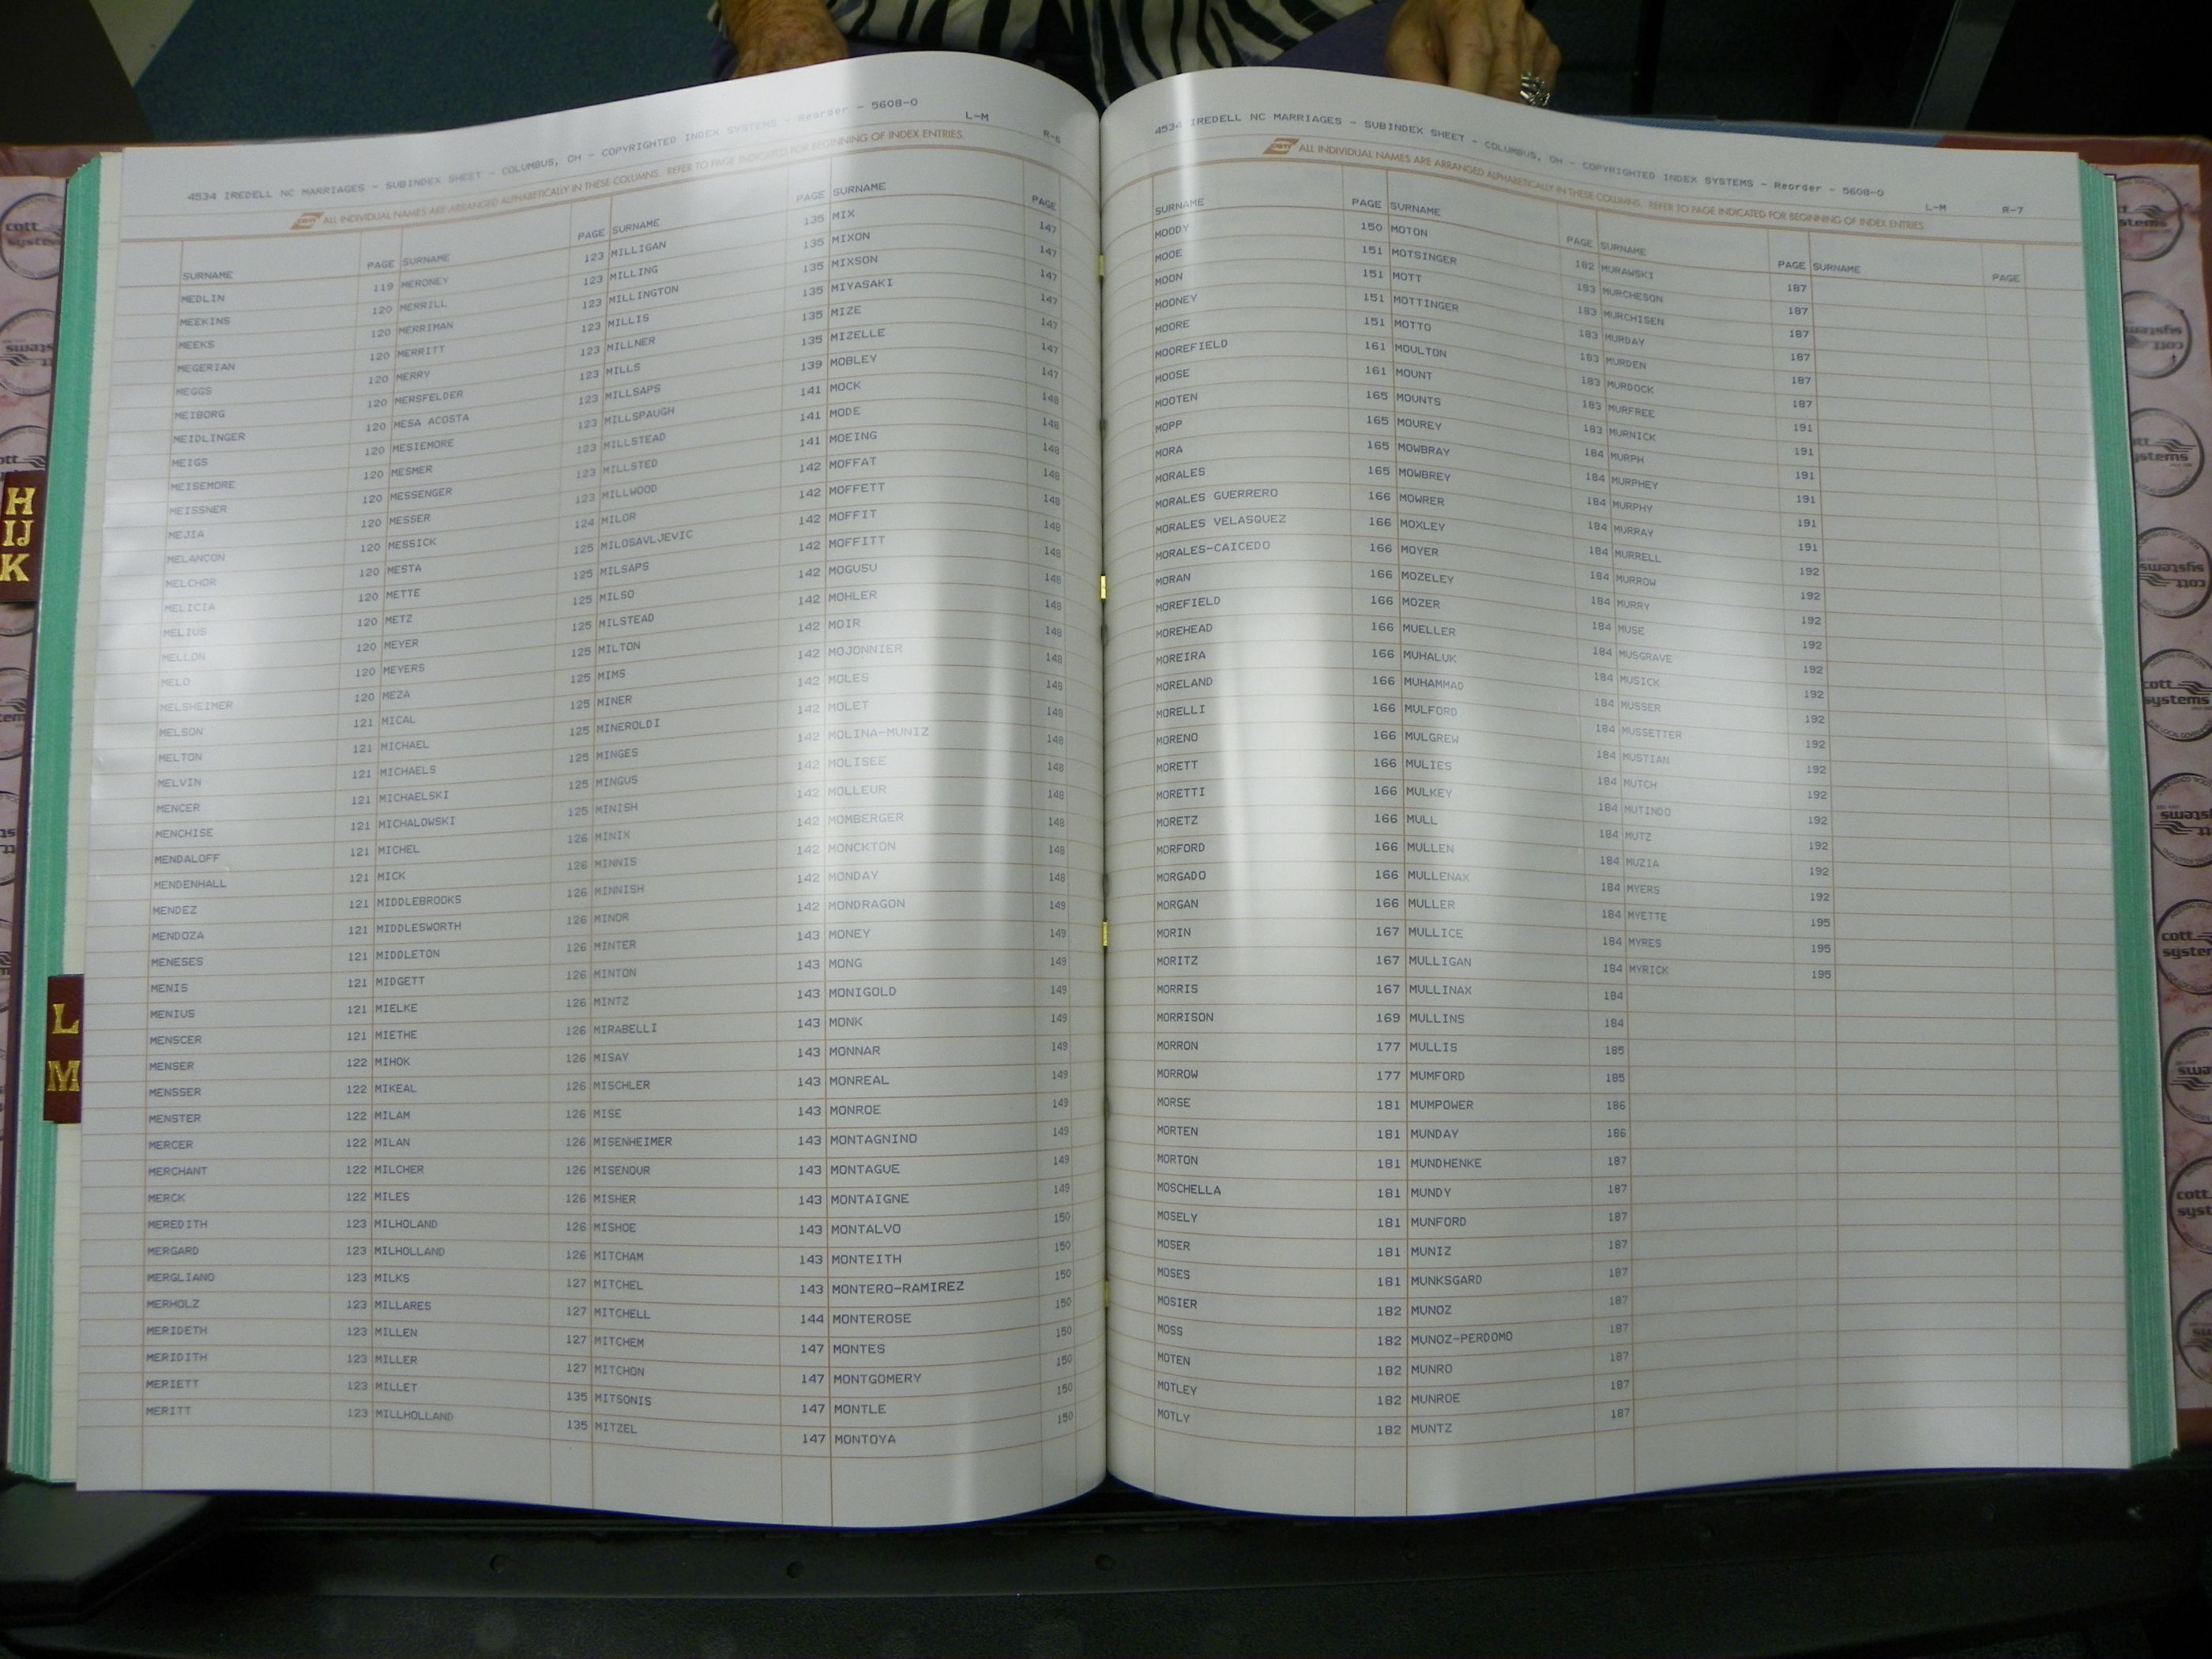 4534 IREDELL NC MARRIAGES - SUBINDEX SHEET - COLUMBUS, OH - COPYRIGHTED INDEX SYSTEMS - Reorder - 5608-0 L-M R-6
ALL INDIVIDUAL NAMES ARE ARRANGED ALPHABETICALLY IN THESE COLUMNS. REFER TO PAGE INDICATED FOR BEGINNING OF INDEX ENTRIES
SURNAME PAGE
MEDLIN 119
MEEKINS 120
MEEKS 120
MEGERIAN 120
MEGGS 120
MEIBORG 120
MEIDLINGER 120
MEIGS 120
MEISEMORE 120
MEISSNER 120
MEJIA 120
MELANCON 120
MELCHOR 120
MELICIA 120
MELIUS 120
MELLON 120
MELO 120
MELSHEIMER 120
MELSON 121
MELTON 121
MELVIN 121
MENCER 121
MENCHISE 121
MENDALOFF 121
MENDENHALL 121
MENDEZ 121
MENDOZA 121
MENESES 121
MENIS 121
MENIUS 121
MENSCER 121
MENSER 122
MENSSER 122
MENSTER 122
MERCER 122
MERCHANT 122
MERCK 122
MEREDITH 123
MERGARD 123
MERGLIANO 123
MERHOLZ 123
MERIDETH 123
MERIDITH 123
MERIETT 123
MERITT 123
SURNAME PAGE
MERONEY 123
MERRILL 123
MERRIMAN 123
MERRITT 123
MERRY 123
MERSFELDER 123
MESA ACOSTA 123
MESIEMORE 123
MESMER 123
MESSENGER 123
MESSER 123
MESSICK 124
MESTA 125
METTE 125
METZ 125
MEYER 125
MEYERS 125
MEZA 125
MICAL 125
MICHAEL 125
MICHAELS 125
MICHAELSKI 125
MICHALOWSKI 125
MICHEL 126
MICK 126
MIDDLEBROOKS 126
MIDDLESWORTH 126
MIDDLETON 126
MIDGETT 126
MIELKE 126
MIETHE 126
MIHOK 126
MIKEAL 126
MILAM 126
MILAN 126
MILCHER 126
MILES 126
MILHOLAND 126
MILHOLLAND 126
MILKS 127
MILLARES 127
MILLEN 127
MILLER 127
MILLET 135
MILLHOLLAND 135
SURNAME PAGE
MILLIGAN 135
MILLING 135
MILLINGTON 135
MILLIS 135
MILLNER 135
MILLS 135
MILLSAPS 139
MILLSPAUGH 141
MILLSTEAD 141
MILLSTED 141
MILLWOOD 142
MILOR 142
MILOSAVLJEVIC 142
MILSAPS 142
MILSO 142
MILSTEAD 142
MILTON 142
MIMS 142
MINER 142
MINEROLDI 142
MINGES 142
MINGUS 142
MINISH 142
MINIX 142
MINNIS 142
MINNISH 142
MINOR 142
MINTER 143
MINTON 143
MINTZ 143
MIRABELLI 143
MISAY 143
MISCHLER 143
MISE 143
MISENHEIMER 143
MISENOUR 143
MISHER 143
MISHOE 143
MITCHAM 143
MITCHEL 143
MITCHELL 144
MITCHEM 147
MITCHON 147
MITSONIS 147
MITZEL 147
SURNAME PAGE
MIX 147
MIXON 147
MIXSON 147
MIYASAKI 147
MIZE 147
MIZELLE 147
MOBLEY 147
MOCK 148
MODE 148
MOEING 148
MOFFAT 148
MOFFETT 148
MOFFIT 148
MOFFITT 148
MOGUSU 148
MOHLER 148
MOIR 148
MOJONNIER 148
MOLES 148
MOLET 148
MOLINA-MUNIZ 148
MOLISEE 148
MOLLEUR 148
MOMBERGER 148
MONCKTON 148
MONDAY 148
MONDRAGON 149
MONEY 149
MONG 149
MONIGOLD 149
MONK 149
MONNAR 149
MONREAL 149
MONROE 149
MONTAGNINO 149
MONTAGUE 149
MONTAIGNE 149
MONTALVO 150
MONTEITH 150
MONTERO-RAMIREZ 150
MONTEROSE 150
MONTES 150
MONTGOMERY 150
MONTLE 150
MONTOYA 150
4534 IREDELL NC MARRIAGES - SUBINDEX SHEET - COLUMBUS, OH - COPYRIGHTED INDEX SYSTEMS - Reorder - 5608-0 L-M R-7
ALL INDIVIDUAL NAMES ARE ARRANGED ALPHABETICALLY IN THESE COLUMNS. REFER TO PAGE INDICATED FOR BEGINNING OF INDEX ENTRIES
SURNAME PAGE
MOODY 150
MOOE 151
MOON 151
MOONEY 151
MOORE 151
MOOREFIELD 161
MOOSE 161
MOOTEN 165
MOPP 165
MORA 165
MORALES 165
MORALES GUERRERO 166
MORALES VELASQUEZ 166
MORALES-CAICEDO 166
MORAN 166
MOREFIELD 166
MOREHEAD 166
MOREIRA 166
MORELAND 166
MORELLI 166
MORENO 166
MORETT 166
MORETTI 166
MORETZ 166
MORFORD 166
MORGADO 166
MORGAN 166
MORIN 167
MORITZ 167
MORRIS 167
MORRISON 169
MORRON 177
MORROW 177
MORSE 181
MORTEN 181
MORTON 181
MOSCHELLA 181
MOSELY 181
MOSER 181
MOSES 181
MOSIER 182
MOSS 182
MOTEN 182
MOTLEY 182
MOTLY 182
SURNAME PAGE
MOTON 182
MOTSINGER 183
MOTT 183
MOTTINGER 183
MOTTO 183
MOULTON 183
MOUNT 183
MOUNTS 183
MOUREY 184
MOWBRAY 184
MOWBREY 184
MOWRER 184
MOXLEY 184
MOYER 184
MOZELEY 184
MOZER 184
MUELLER 184
MUHALUK 184
MUHAMMAD 184
MULFORD 184
MULGREW 184
MULIES 184
MULKEY 184
MULL 184
MULLEN 184
MULLENAX 184
MULLER 184
MULLICE 184
MULLIGAN 184
MULLINAX 184
MULLINS 184
MULLIS 185
MUMFORD 185
MUMPOWER 186
MUNDAY 186
MUNDHENKE 187
MUNDY 187
MUNFORD 187
MUNIZ 187
MUNKSGARD 187
MUNOZ 187
MUNOZ-PERDOMO 187
MUNRO 187
MUNROE 187
MUNTZ 187
SURNAME PAGE
MURAWSKI 187
MURCHESON 187
MURCHISEN 187
MURDAY 187
MURDEN 187
MURDOCK 187
MURFREE 191
MURNICK 191
MURPH 191
MURPHEY 191
MURPHY 191
MURRAY 191
MURRELL 192
MURROW 192
MURRY 192
MUSE 192
MUSGRAVE 192
MUSICK 192
MUSSER 192
MUSSETTER 192
MUSTIAN 192
MUTCH 192
MUTINDO 192
MUTZ 192
MUZIA 192
MYERS 192
MYETTE 195
MYRES 195
MYRICK 195
SURNAME PAGE
H
IJ
K
L
M
cott
systems